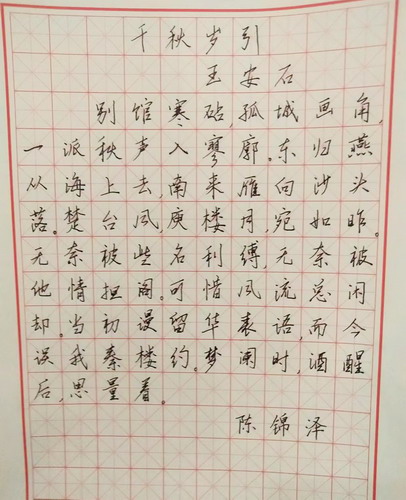 千秋岁引
王安石
别馆寒砧，孤城画角，
一派秋声入寥廓。东归燕
从海上去，南来雁向沙头
落。楚台风，庾楼月，宛如昨。
无奈被些名利缚，无奈被
他情担阁。可惜风流总闲
却。当初漫留华表语，而今
误我秦楼约。梦阑时，酒醒
后，思量着。
陈锦泽